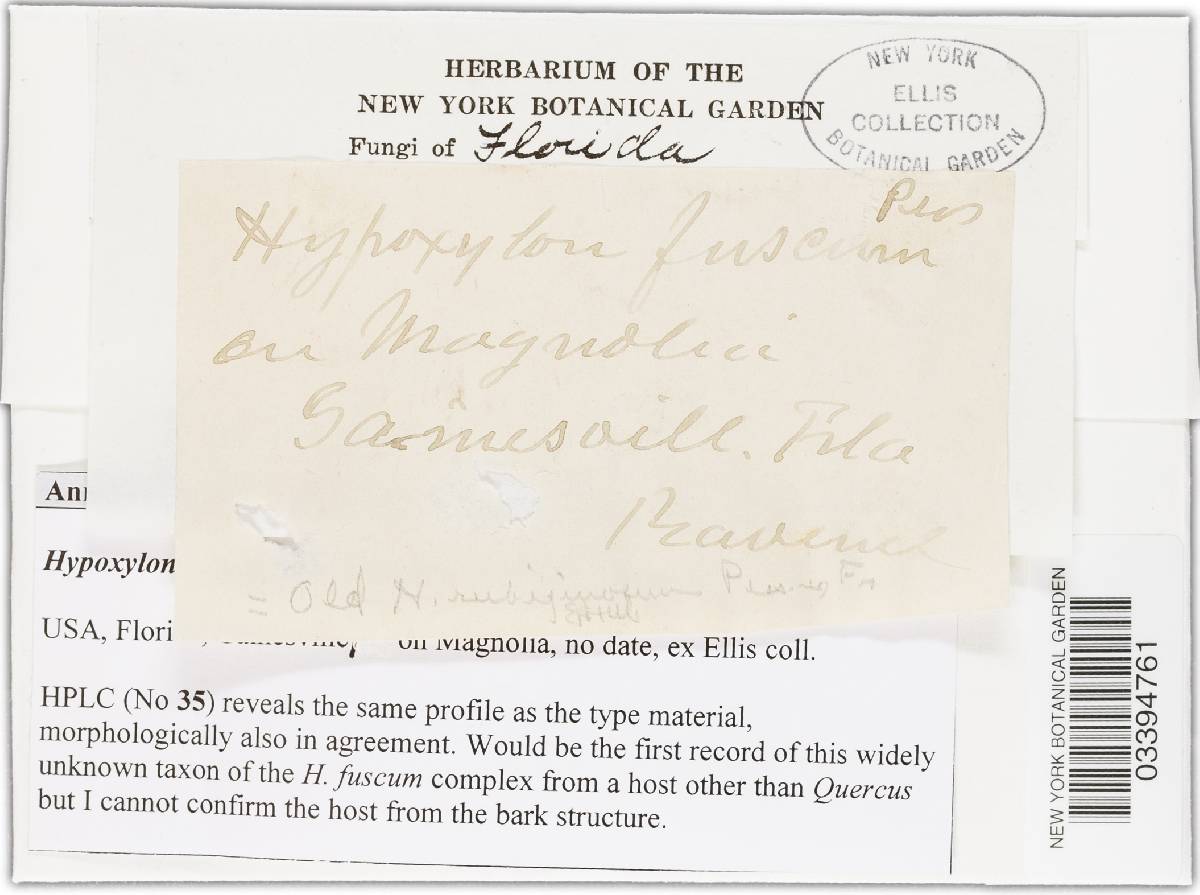 HERBARIUM OF THE
NEW YORK BOTANICAL GARDEN
Fungi of Florida
NEW YORK
ELLIS
COLLECTION
BOTANICAL GARDEN
Pers
Hypoxylon fuscum
on Magnolia
Gainesvill. Fla
Ravenel
= Old H. rubiginosum Pers. Fr
Hypoxylon
USA, Flori
on Magnolia, no date, ex Ellis coll.
HPLC (No 35) reveals the same profile as the type material,
morphologically also in agreement. Would be the first record of this widely
unknown taxon of the H. fuscum complex from a host other than Quercus
but I cannot confirm the host from the bark structure.
NEW YORK BOTANICAL GARDEN
03394761